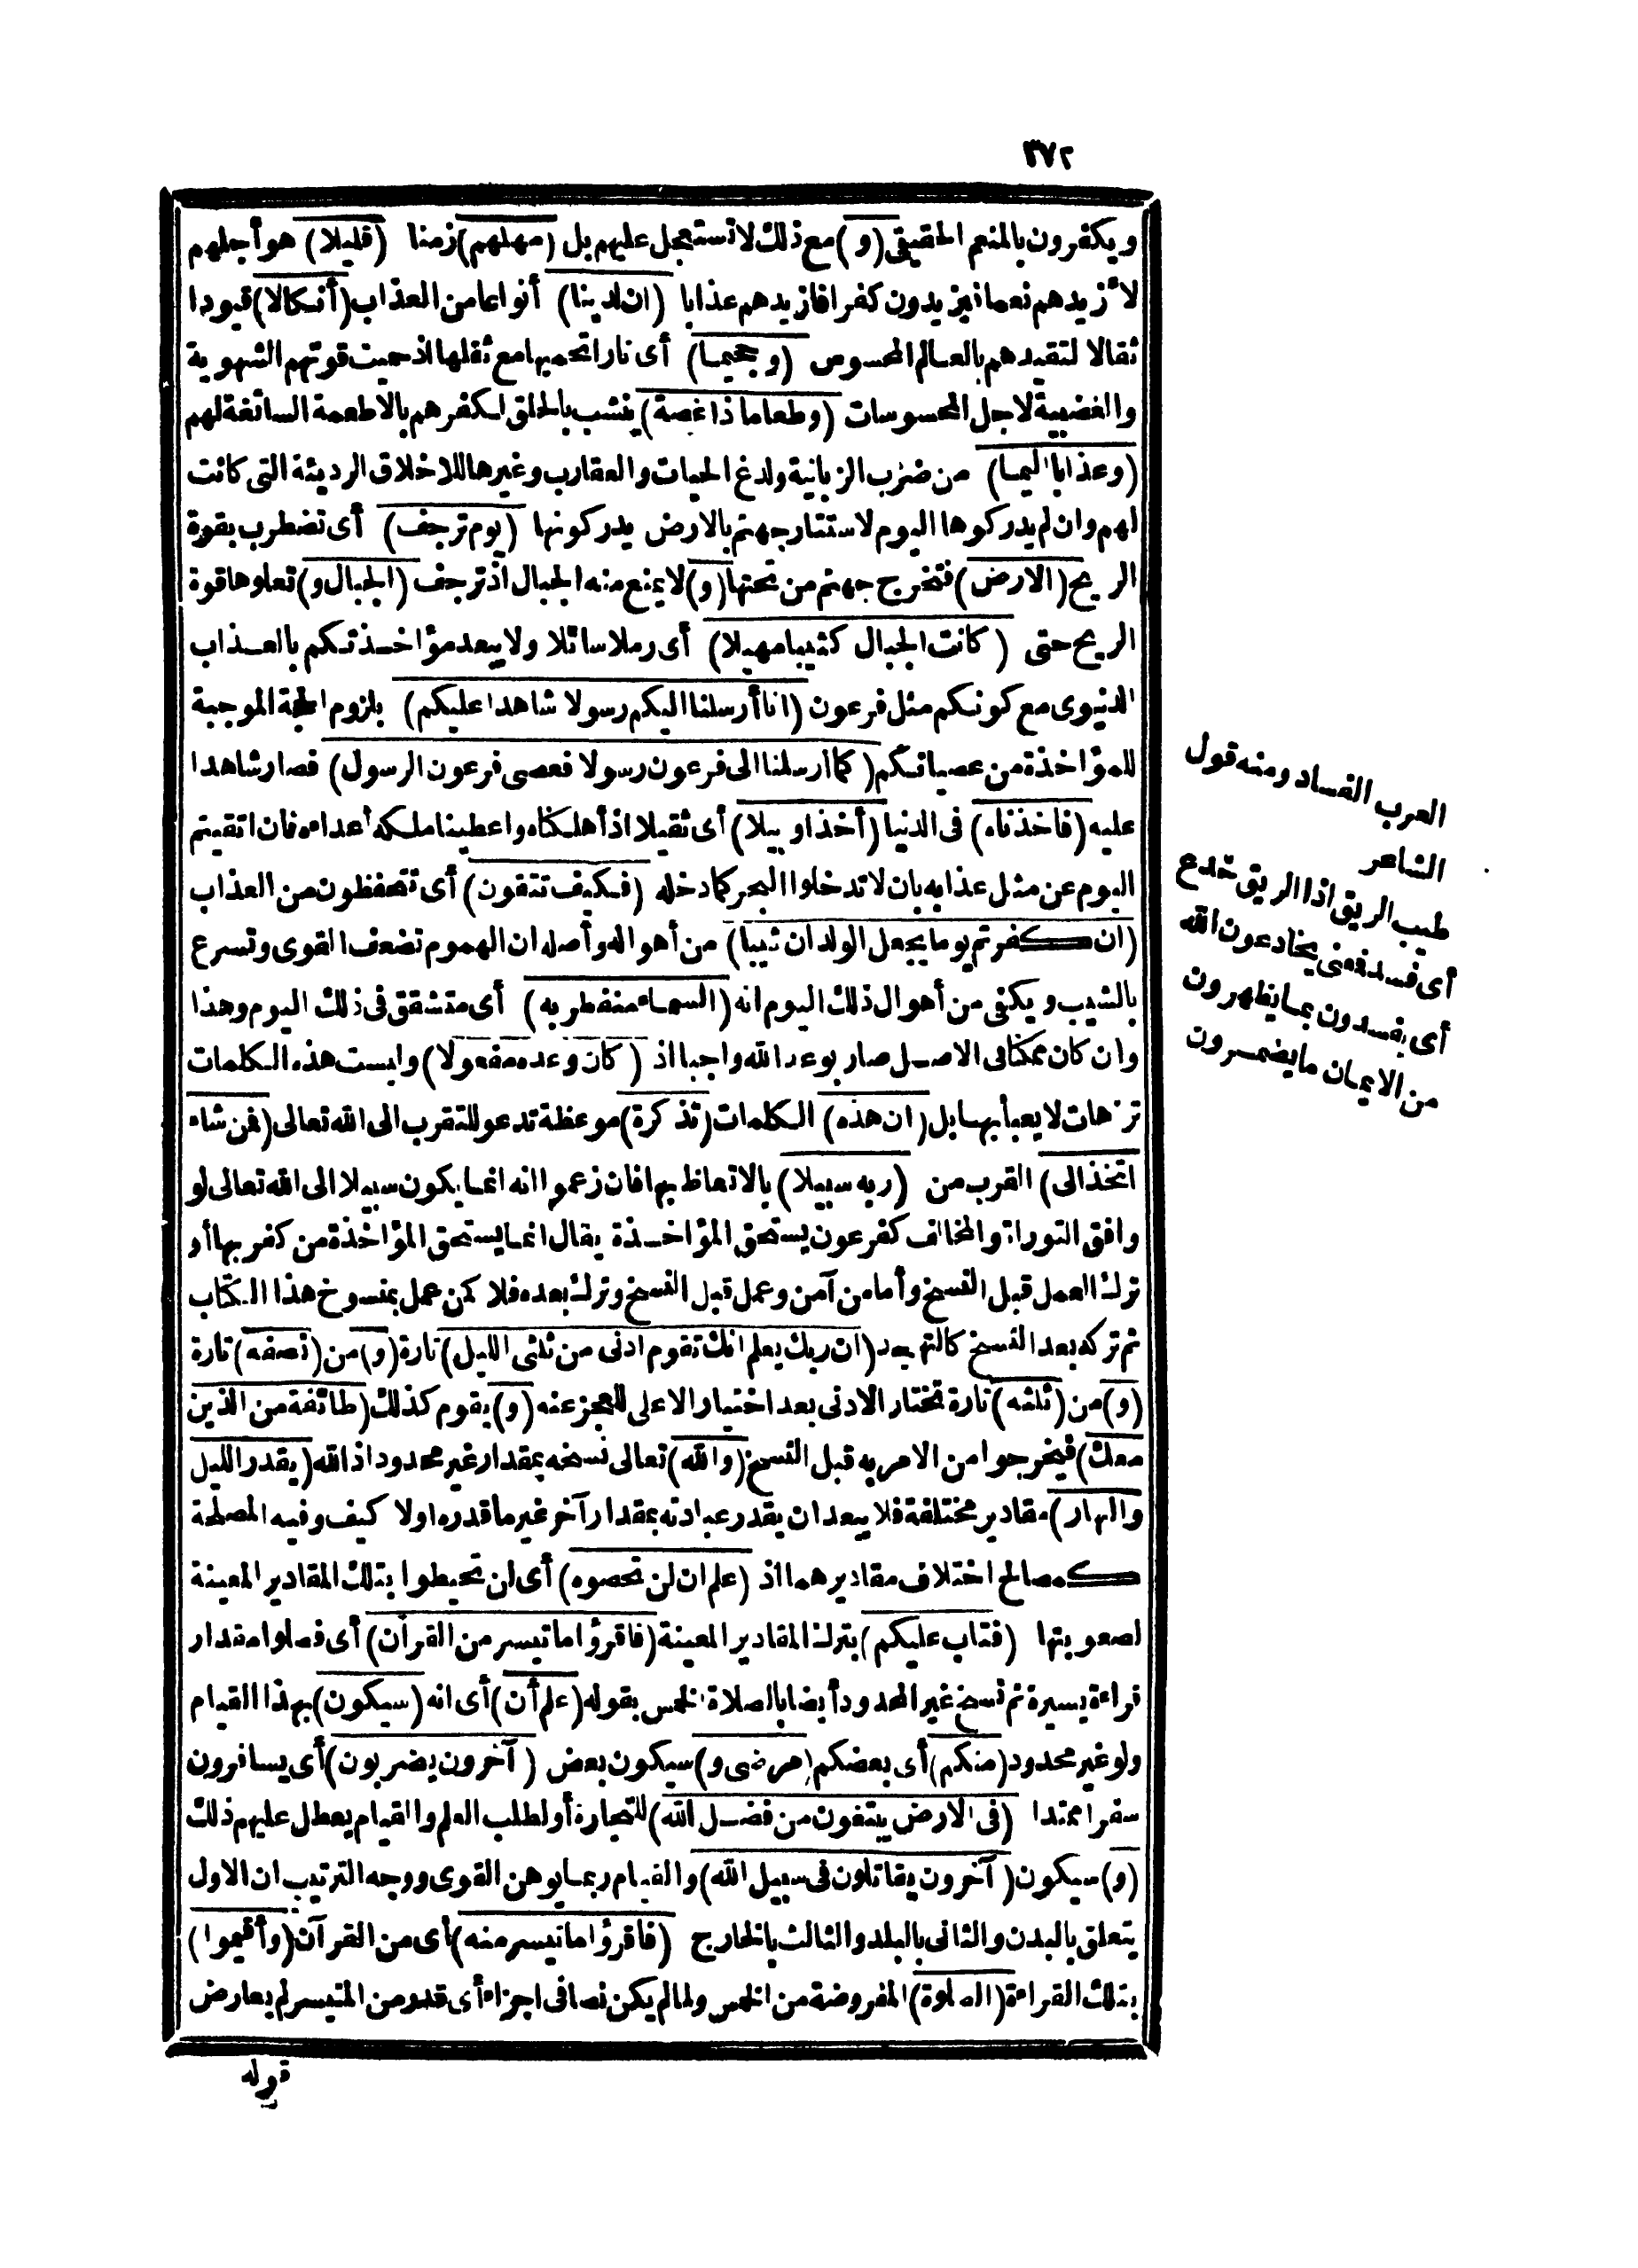 ٣٧٢
ويكفرون بالمنعم الحقيقى (و) مع ذلك لا تستعجل عليهم بل (مهلهم) زمنا (قليلا) هو أجلهم
لأزيدهم نعما فيزيدون كفرا فازيدهم عذابا (ان لدينا) أنواعا من العذاب (أنكالا) قيودا
ثقالا لتقيدهم بالعالم المحسوس (وجحيما) أى نارا تحميها مع ثقلها اذ حميت قوتهم الشهوية
والغضبية لاجل المحسوسات (وطعاما ذا غصة) ينشب بالحلق لكفرهم بالاطعمة السائغة لهم
(وعذابا اليما) من ضرب الزبانية ولدغ الحيات والعقارب وغيرها للاخلاق الرديئة التى كانت
لهم وان لم يدركوها اليوم لاستتار جهنم بالارض يدركونها (يوم ترجف) أى تضطرب بقوة
الريح (الارض) فتخرج جهنم من تحتها (و) لا يمنع منه الجبال اذ ترجف (الجبال و) تعلوها قوة
الريح حتى (كانت الجبال كثيبا مهيلا) أى رملا سائلا ولا يبعد مؤاخذتكم بالعذاب
الدنيوى مع كونكم مثل فرعون (انا أرسلنا اليكم رسولا شاهدا عليكم) بلزوم الحجة الموجبة
للمؤاخذة من عصيانكم (كما ارسلنا الى فرعون رسولا فعصى فرعون الرسول) فصار شاهدا
عليه (فاخذناه) فى الدنيا (أخذا وبيلا) أى ثقيلا اذ أهلكناه واعطينا ملكه أعداءه فان اتقيتم
اليوم عن مثل عذابه بان لا تدخلوا البحر كما دخله (فكيف تتقون) أى تتحفظون من العذاب
(ان كفرتم يوما يجعل الولدان شيبا) من أهواله وأصله ان الهموم تضعف القوى وتسرع
بالشيب ويكفى من أهوال ذلك اليوم انه (السماء منفطر به) أى متشقق فى ذلك اليوم وهذا
وان كان ممكنا فى الاصل صار بوعد الله واجبا اذ (كان وعده مفعولا) وليست هذه الكلمات
ترهات لا يعبأ بها بل (ان هذه) الكلمات (تذكرة) موعظة تدعو للتقرب الى الله تعالى (فمن شاء
اتخذ الى) القرب من (ربه سبيلا) بالاتعاظ بها فان زعموا انه انما يكون سبيلا الى الله تعالى لو
وافق التوراة والمخالف كفرعون يستحق المؤاخذة يقال انما يستحق المؤاخذة من كفر بها أو
ترك العمل قبل النسخ وأما من آمن وعمل قبل النسخ وترك بعده فلا كمن عمل بمنسوخ هذا الكتاب
ثم تركه بعد النسخ كالتهجد (ان ربك يعلم انك تقوم ادنى من ثلثى الليل) تارة (و) من (نصفه) تارة
(و) من (ثلثه) تارة تختار الادنى بعد اختيار الاعلى للعجز عنه (و) يقوم كذلك (طائفة من الذين
معك) فيخرجوا من الامر به قبل النسخ (والله) تعالى نسخه بمقدار غير محدود اذ الله (يقدر الليل
والنهار) مقادير مختلفة فلا يبعد ان يقدر عبادته بمقدار آخر غير ما قدره اولا كيف وفيه المصلحة
كمصالح اختلاف مقاديرهما اذ (علم ان لن تحصوه) أى لن تحيطوا بتلك المقادير المعينة
لصعوبتها (فتاب عليكم) بترك المقادير المعينة (فاقرؤا ما تيسر من القرآن) أى فصلوا مقدار
قراءة يسيرة ثم نسخ غير المحدود أيضا بالصلاة الخمس بقوله (علم أن) أى انه (سيكون) بهذا القيام
ولو غير محدود (منكم) أى بعضكم (مرضى و) سيكون بعض (آخرون يضربون) أى يسافرون
سفرا ممتدا (فى الارض يبتغون من فضل الله) للتجارة أو لطلب العلم والقيام يعطل عليهم ذلك
(و) سيكون (آخرون يقاتلون فى سبيل الله) والقيام ربما يوهن القوى ووجه الترتيب ان الاول
يتعلق بالبدن والثانى بالبلد والثالث بالخارج (فاقرؤا ما تيسر منه) أى من القرآن (وأقيموا)
بتلك القراءة (الصلوة) المفروضة من الخمس ولما لم يكن نصا فى اجزاء أى قدر من المتيسر لم يعارض
قوله
العرب الفساد ومنه قول
الشاعر
طيب الريق اذا الريق خدع
أى فسد فمعنى يخادعون الله
أى يفسدون بما يظهرون
من الايمان ما يضمرون